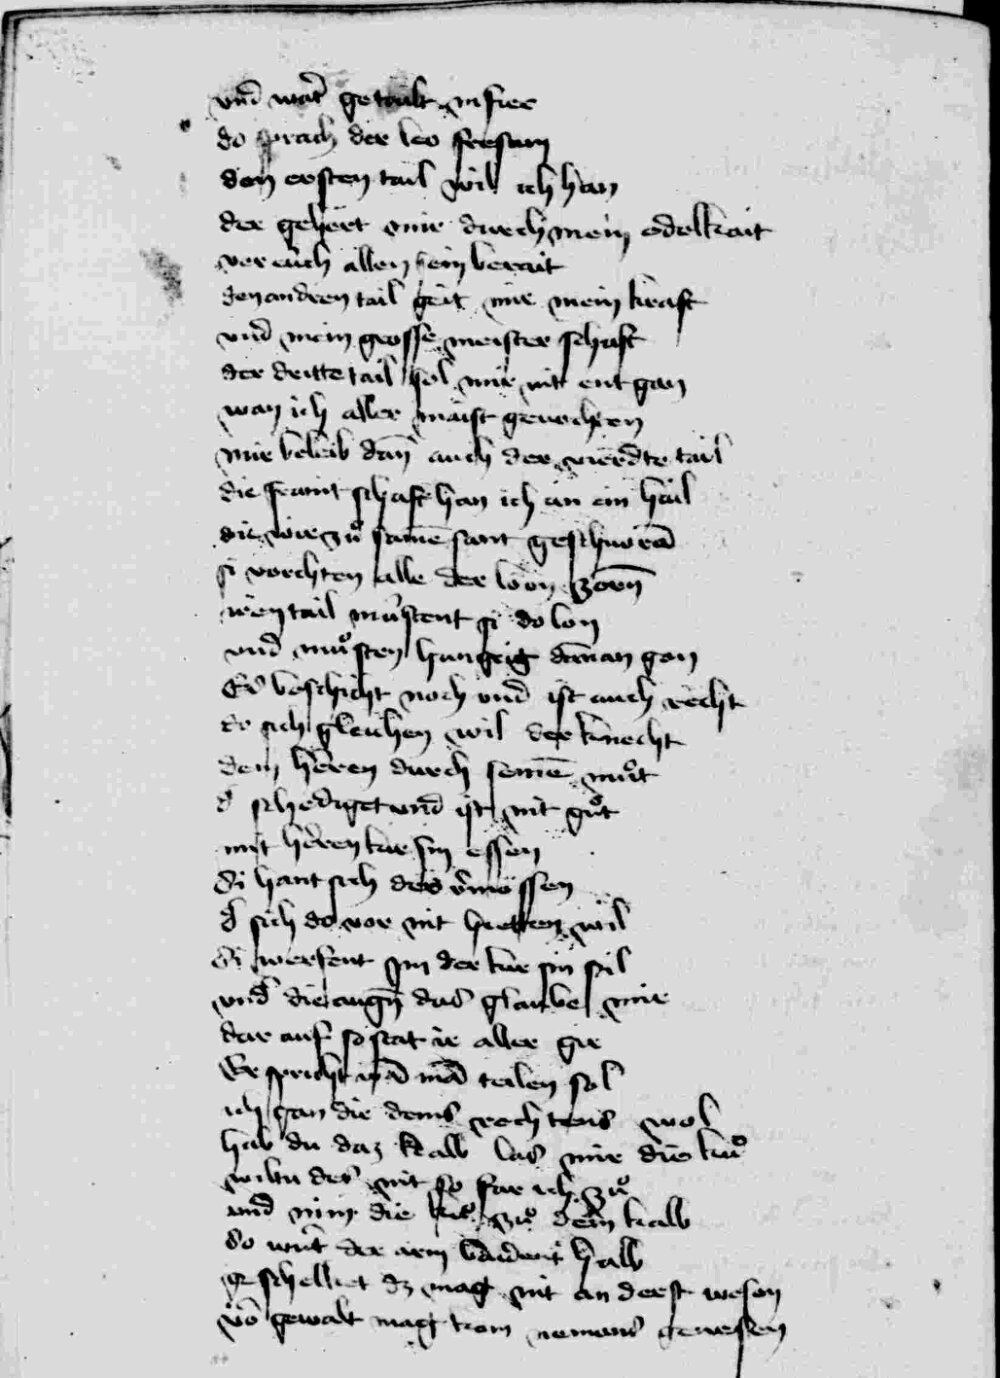 vnd wart getailt in fier
do sprach der leo freisam
den ersten tail wil ich han
der gehert mir durch mein edelkait
vor euch allen sein berait
den andren tail geit mir mein kraft
vnd mein grosse meister schaft
der dritte tail sol mir nit ent gan
wan ich aller maist gevochten
mir beleib dan̄ auch der vierdte tail
die fraint schaft han ich an ein hail
die wir zuͦ samē sant geschworā
si vorchten alle der loͤn zorn̄
iren tail muͤstent si do lon
vnd muͦsten hungrig dannan gon
Es beschicht noch vnd ist auch recht
do sich gleichen wil der knecht
dem herren durch seinē muͦt
d schediget vnd ist nit guͦt
mit herren kirsin essen
Si hant sich des v̄messen
d sich do vor nit hietten wil
Si werfent im der kirsin stil
vnd die augn̄ das glaube mir
dar auf so stat ir aller gir
Er spricht wā mā teilen sol
ich gan dir deins rechtens wol
hab du daz kalb las mir die kuͦ
wiltu des nit so far ich zuͦ
vnd nim die kuͦ zuͦ dem kalb
So wirt der arm baident halb
geschellet dz mag nit anderst wesen
vō gewalt mag kom niemans genesen